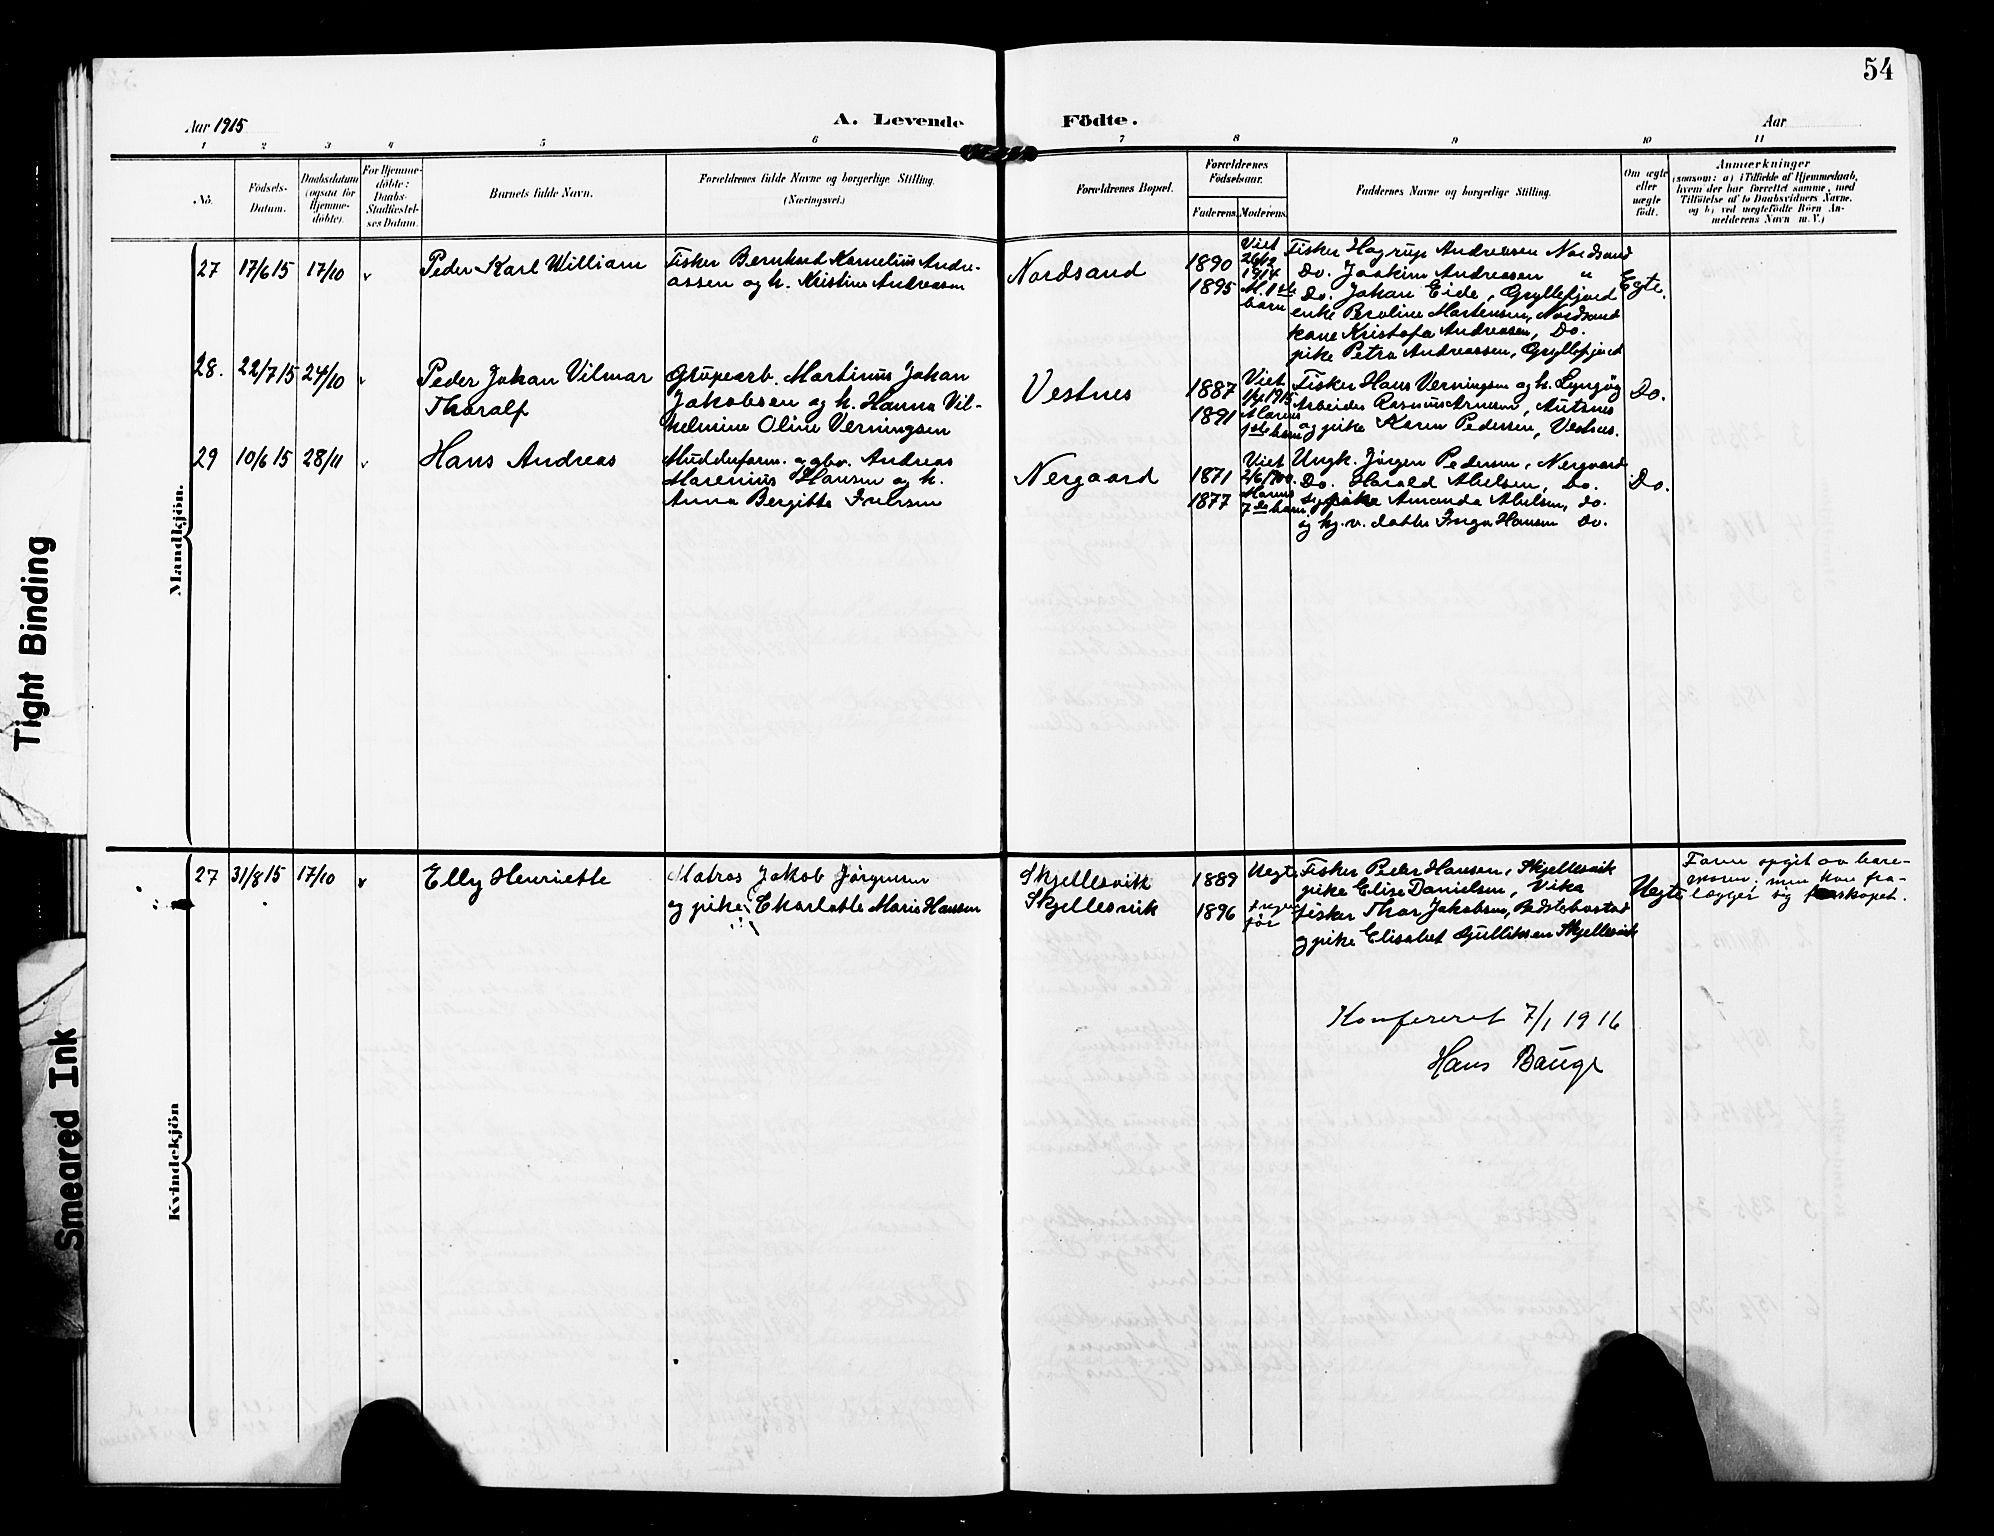 54
Aar 1915
A. Levende
Födte.
Aar
1 2 3 4 5 6 7 8 9 10 11
No.
Födsels-
Datum.
Daabsdatum
(ogsaa for
Hjemme-
döbte).
For Hjemme-
döbte:
Daabs-
Stadfæstel-
ses Datum.
Barnets fulde Navn.
Forældrenes fulde Navne og borgerlige Stilling.
(Næringsvei.)
Forældrenes Bopæl.
Forældrenes
Födselsaar.
Faderens.
Moderens.
Faddernes Navne og borgerlige Stilling.
Om ægte
eller
uægte
födt.
Anmærkninger
(saasom: a) i Tilfælde af Hjemmedaab,
hvem der har forrettet samme, med
Tilföielse af to Daabsvidners Navne.
og b) ved uægtefödte Börn An-
melderens Navn m. V.)
Mandkjön.
27 17/6 15 17/10 v
Peder Karl William
Fisker Bernhard Kornelius Andre-
assen og h. Kristine Andreassen
Nordsand
1890
1895
Viet
26/12
1914
M. 1ste
barn
Fisker Hagrup Andreassen Nordsand
Do. Joakim Andreassen "
Do. Johan Eide, Gryllefjord
enke Beroline Mortensen, Nordsand
kone Kristofa Andreassen, Do.
pike Petra Andreassen, Gryllefjord
Egte.
28. 22/7 15 24/10 v
Peder Johan Vilmar
Thoralf
Grupearb. Martinus Johan
Jakobsen og h. Hanna Vil-
helmine Oline Verningsen
Vestnes
1887
1891
Viet
1915
Morens
1ste barn
Fisker Hans Verningsen og h. Lyngöy
Arbeider Rasmus Arnesen,
og pike Karen Pedersen, Vestnes.
Do.
29 10/6 15 28/11 v
Hans Andreas
Mudderform. og gbr. Andreas
Marenius Hansen og h.
Anna Bergitte
Nergaard
1871
1877
Viet
Morens
7de barn
Ungk. Jörgen Pedersen, Nergaard
Do. Harald Abelsen, Do.
sypike Amanda Abelsen, do.
og hj.v. datter Inga Hansen Do.
Do.
Kvindekjön
27 31/8 15 17/10 v
Elly Henriette
Matros Jakob Jörgensen
og pike Charlotte Marie Hansen
Skjellesvik
Skjellesvik
1889
1896
Uegte
före
Fisker Peder Hansen, Skjellesvik
pike Elise Danielsen, Vika
fisker Thor Jakobsen,
og pike Elisabet Gulliksen Skjellesvik
Uegte
Faren opgit av barne-
moren, men han fra-
lægger sig farskapet.
Konfereret 7/1 1916
Hans Bauge
Tight Binding
Smeared Ink